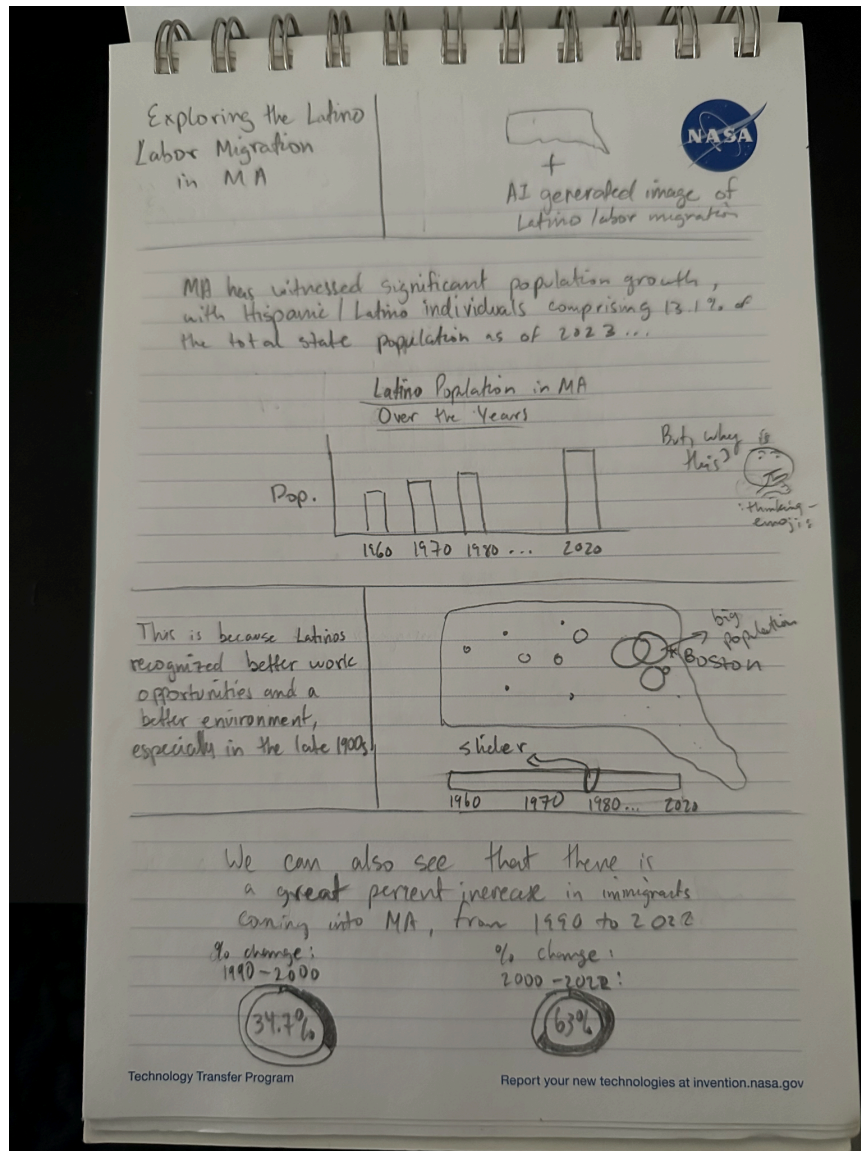 Exploring the Latino
Labor Migration
in MA
NASA
+
AI generated image of
Latino labor migration
MA has witnessed significant population growth,
with Hispanic / Latino individuals comprising 13.1% of
the total state population as of 2023...
Latino Poplation in MA
Over the Years
Pop.
1960 1970 1980 ... 2020
But, why is
this?
:thinking-
emoji:
This is because Latinos
recognized better work
opportunities and a
better environment,
especially in the late 1900s!
big
population
Boston
slider
1960 1970 1980... 2020
We can also see that there is
a great percent increase in immigrants
coming into MA, from 1990 to 2022
% change:
1990-2000
34.7%
% change:
2000-2022:
63%
Technology Transfer Program
Report your new technologies at invention.nasa.gov